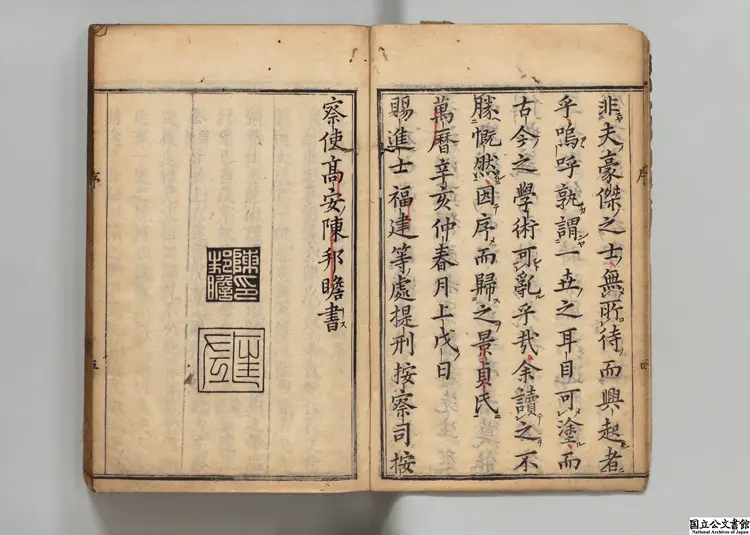 非夫豪傑之士無所待而興起者
乎嗚呼孰謂一世之耳目可塗而
古今之學術可亂乎哉余讀之不
勝慨然因序而歸之景貞氏
萬曆辛亥仲春月上戊日
賜進士福建等處提刑按察司按
察使高安陳邦瞻書
陳印
邦瞻
序
四
序
五
国立公文書館
National Archives of Japan